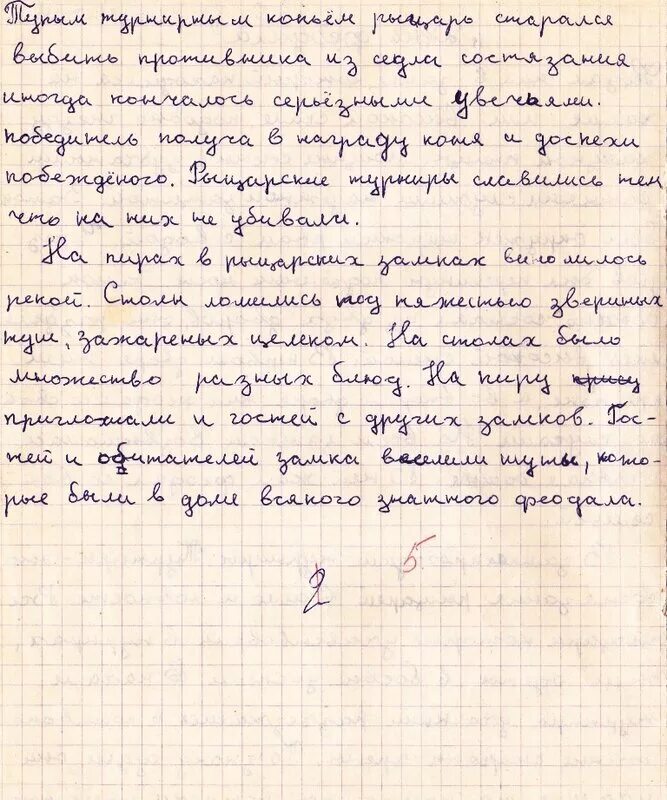 Тупым турнирным копьём рыцарь старался
выбить противника из седла состязания
иногда кончалось серьёзными увечьями.
победитель получа в награду коня и доспехи
побеждёного. Рыцарские турниры славились тем
что на них не убивали.
На пирах в рыцарских замках вино лилось
рекой. Столы ломились под тяжестью звериных
туш, зажареных целеком. На столах было
множество разных блюд. На пиру
приглошали и гостей с других замков. Гос-
тей и обитателей замка веселили шуты, кото-
рые были в доме всякого знатного феодала.
5
2